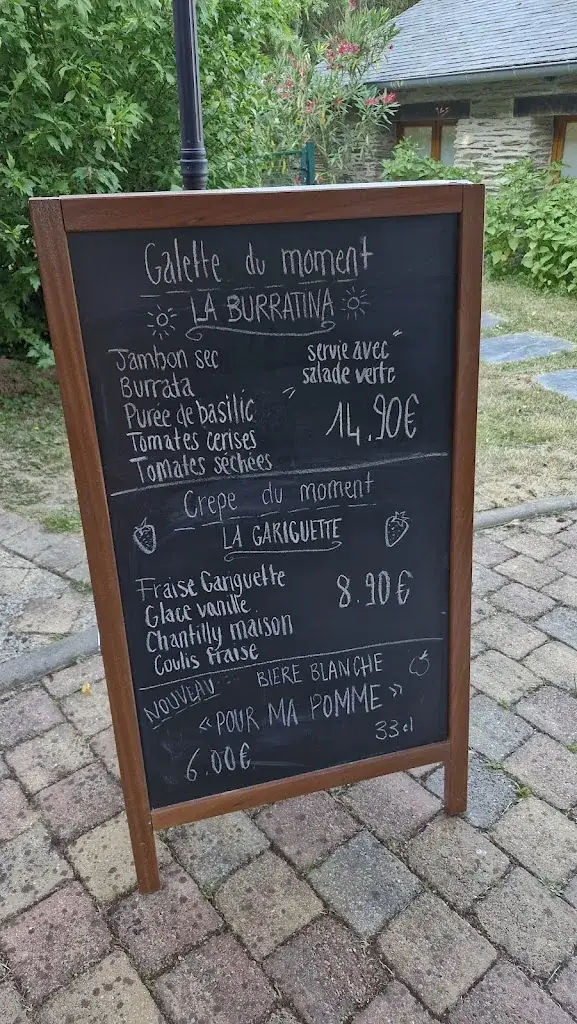 Galette du moment
LA BURRATINA
Jambon sec
Burrata
Purée de basilic
Tomates cerises
Tomates séchées
"servie avec
salade verte"
14.90€
Crêpe du moment
LA GARIGUETTE
Fraise Gariguette
Glace vanille
Chantilly maison
Coulis fraise
8.90€
NOUVEAU BIÈRE BLANCHE
«POUR MA POMME»
6.00€ 33cl